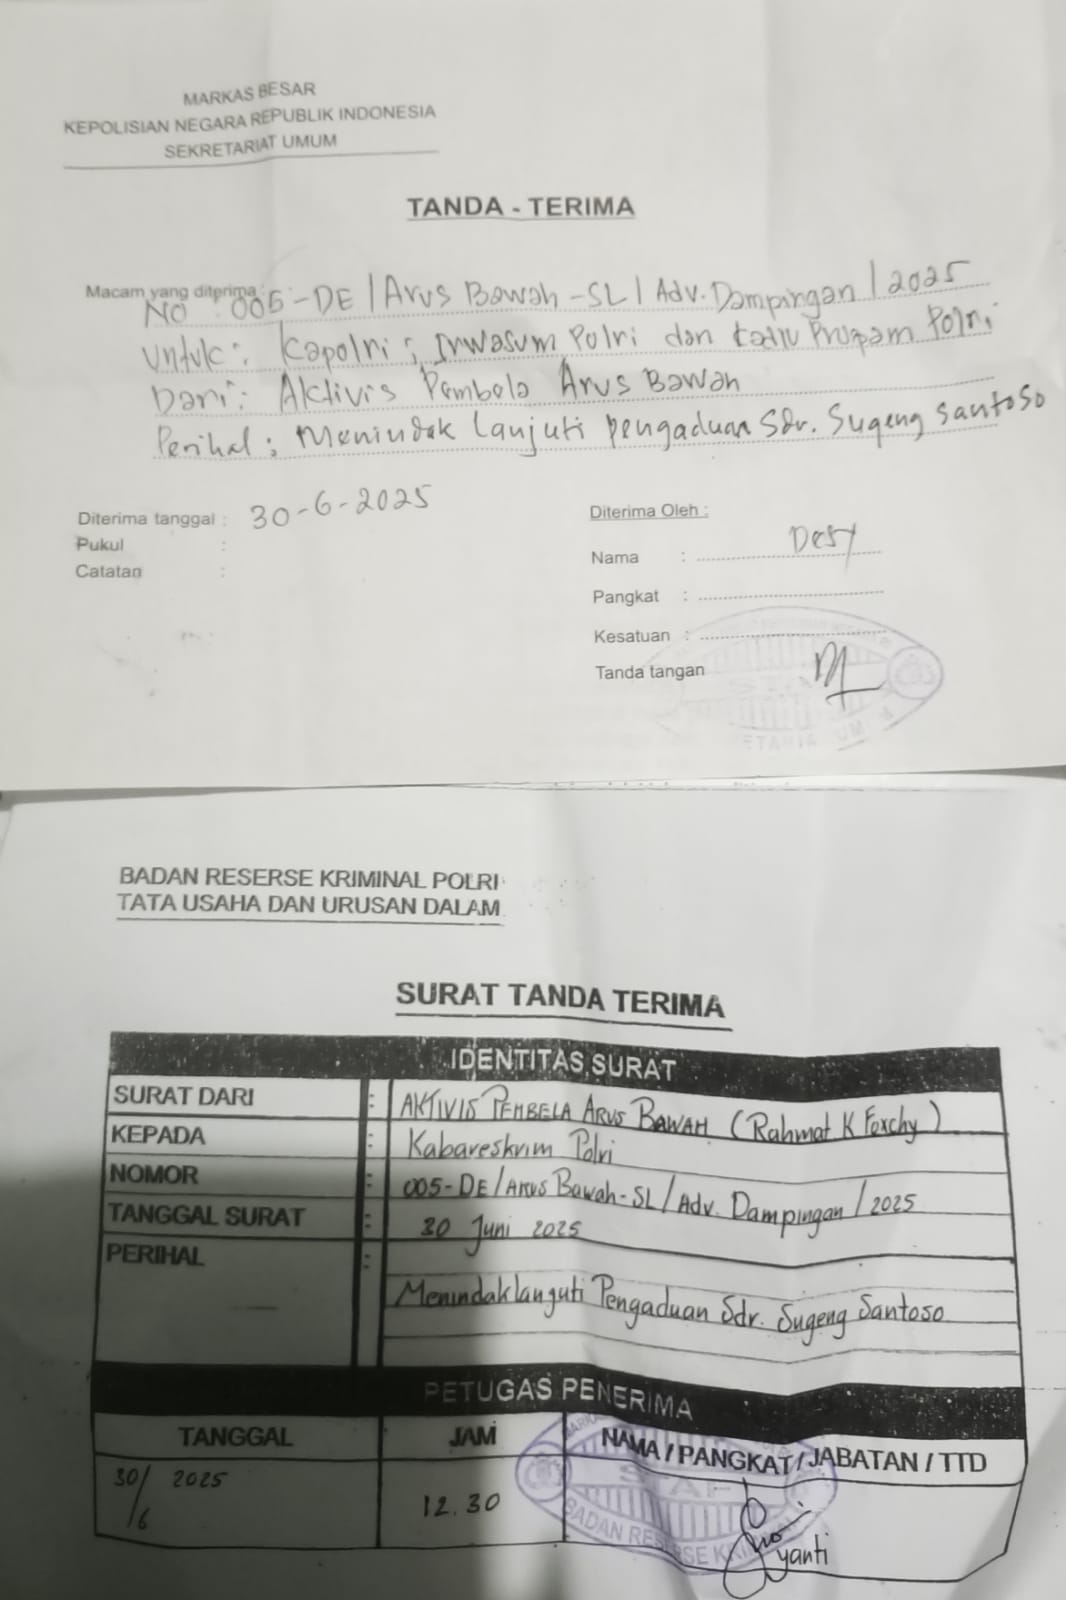 MARKAS BESAR
KEPOLISIAN NEGARA REPUBLIK INDONESIA
SEKRETARIAT UMUM
TANDA - TERIMA
Macam yang diterima :
No : 005-DE / Arus Bawah -SL / Adv. Dampingan / 2025
Untuk : Kapolri ; Irwasum Polri dan Kadiv Propam Polri
Dari : Aktivis Pembela Arus Bawah
Perihal ; Menindak lanjuti pengaduan Sdr. Sugeng Santoso
Diterima tanggal : 30-6-2025
Pukul :
Catatan :
Diterima Oleh :
Nama : Desy
Pangkat :
Kesatuan :
Tanda tangan
BADAN RESERSE KRIMINAL POLRI
TATA USAHA DAN URUSAN DALAM
SURAT TANDA TERIMA
IDENTITAS SURAT
SURAT DARI : AKTIVIS PEMBELA ARUS BAWAH (Rahmat K Foxchy)
KEPADA : Kabareskrim Polri
NOMOR : 005-DE / Arus Bawah-SL / Adv. Dampingan / 2025
TANGGAL SURAT : 30 Juni 2025
PERIHAL : Menindaklanguti Pengaduan Sdr. Sugeng Santoso
PETUGAS PENERIMA
TANGGAL JAM NAMA / PANGKAT / JABATAN / TTD
30/6 2025 12.30
STAF
BADAN RESERSE KRIMINAL
yanti